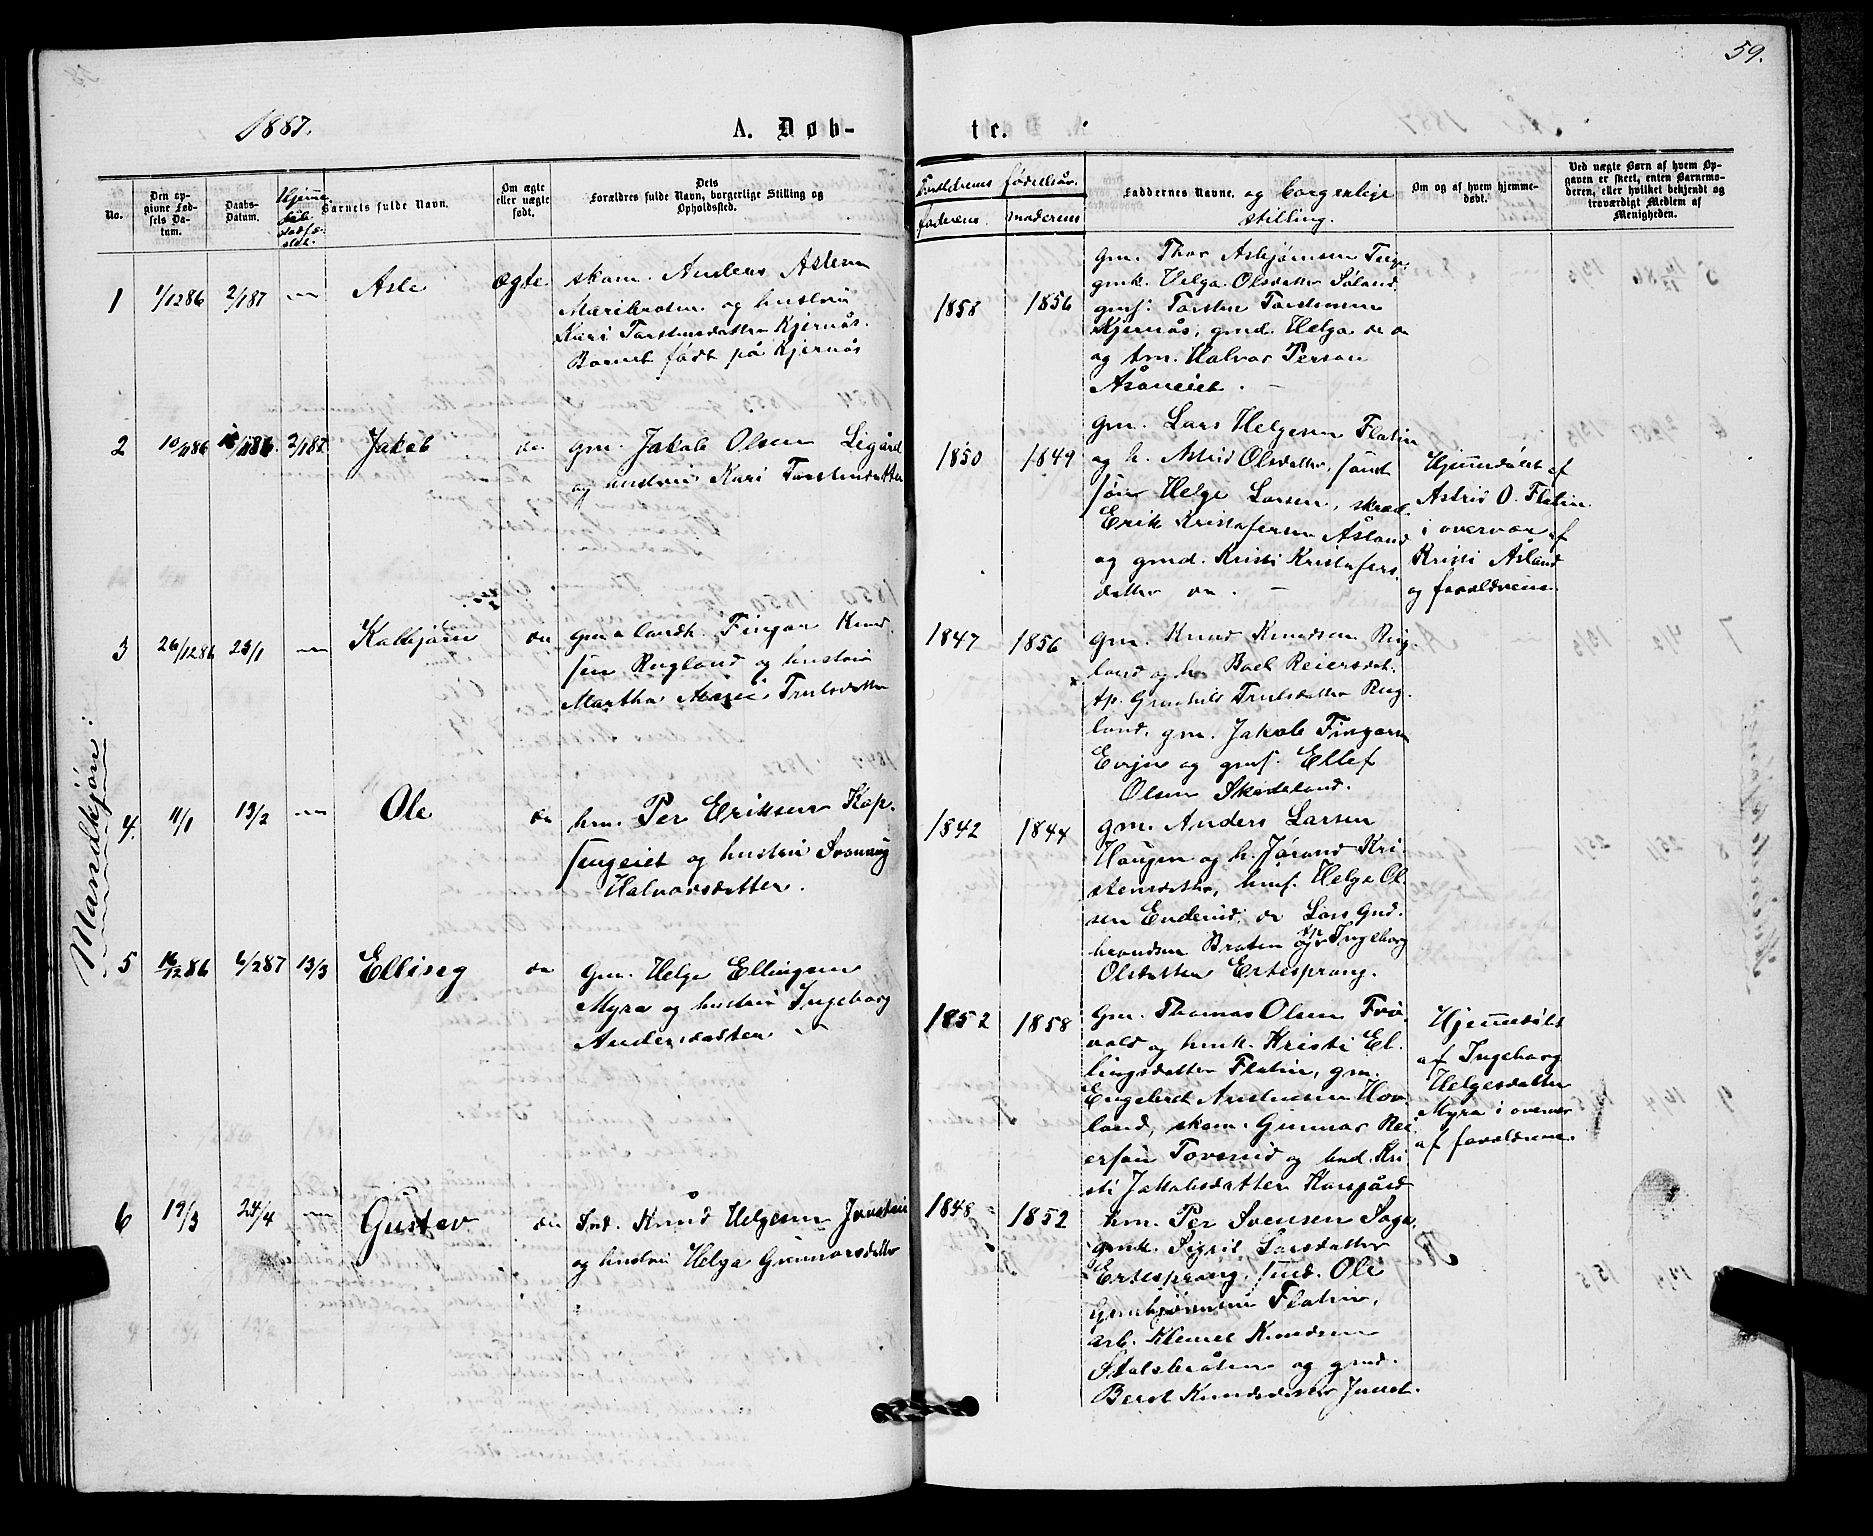 59.
1887.
A. Døb-
te.
No.
Den opgivne Fødsels Datum.
Daabs-Datum.
Hjemmedåb stadfæstet.
Barnets fulde Navn.
Om ægte eller uægte født.
Forældres fulde Navn, borgerlige Stilling og Opholdssted.
Forældrenes fødselsår.
faderens
moderens
Faddernes Navne. og borgerlige stilling.
Om og af hvem hjemmedøbt.
Ved uægte Børn af hvem Opgaven er skeet, enten Barnemoderen, eller hvilket bekjendt og troværdigt Medlem af Menigheden.
Mandkjøn:
1
1/12 86
2/1 87
Asle
ægte
skom. Anders Aslesen
Meribroten og hustru
Kari Torstensdatter Kjernås.
Barnet født på Kjernås
1858
1856
gm. Thor Asbjørnsen
gmk. Helga Olsdatter Søland
gmf. Torsten Torstensen
Kjernås, gmd. Helga do do
og hm. Halvor Person
Åsaneiet.
2
10/11 86
2/1 87
Jakob
do
gm. Jakob Olsen Ligård
og hustru Kari Torstensdatter
1850
1849
gm. Lars Helgesen Flatin
og h. Astrid Olsdatter,
søn Helge Larsen, skræd.
Erik Kristofersen Åsland
og gmd. Kristi Kristofers
datter do.
Hjemmedøbt af
Astrid O. Flatin
i overvær af
Kristi Åsland
og forældrene.
3
26/12 86
23/1
Kolbjørn
do
gm. & landh. Fingar Knud
sen Rugland og hustru
Martha Marie Trulsdatter
1847
1856
gm. Knud Knudsen Rug
land og h. Boel Reiersdat.
Ap. Gunhild Trulsdatter Rug
land. gm. Jakob Fingarsen
Evjen og gmf. Ellef
Olsen Skådeland.
4.
11/1
13/2
Ole
do
hm. Per Eriksen Kop
sengeiet og hustru Svanaug
Halvorsdatter.
1842
1844
gm. Anders Larsen
Haugen og h. Jørand Kri
stensdatter, hmf. Helge Ol
sen Enderud, do Lars Gud
brandsen Braten og Ap. Ingeborg
Olsdatter Ertesprang.
5
16/12 86
6/2 87
13/3
Elling
do
Gm. Helge Ellingsen
Myra og hustru Ingeborg
Andersdatter
1852
1858
Gm. Thomas Olsen Frø
vold og hmk. Kristi El
lingsdatter Flatin, gm.
Engebret Arnesen Hov
land, skom. Gunnar Rei
ersen Tovsrud og hmd. Kri
sti Jakobsdatter Korsgård
Hjemmedøbt
af Ingeborg
Helgesdatter
Myra i overvær
af forældrene.
6
19/3
24/4
Gustav
do
Ind. Knud Helgesen Juvstein
og hustru Helga Gunnarsdatter
1848
1852
hm. Per Svensen Saga,
gmk. Sigrid Larsdatter
Ertesprang, Ind. Ole
Gunbjørnsen Flatin,
arb. Klemet Knudsen
Stalsbråten og gmd.
Berit Knudsdatter Juvst.